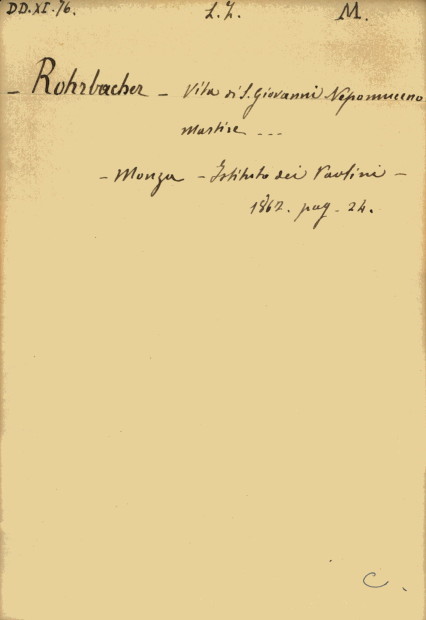 DD.XI.76. L.Z. M.
- Rohrbacher - Vita di S. Giovanni Nepomuceno
Martire ---
- Monza - Istituto dei Paolini -
1862. pag. 24.
C.